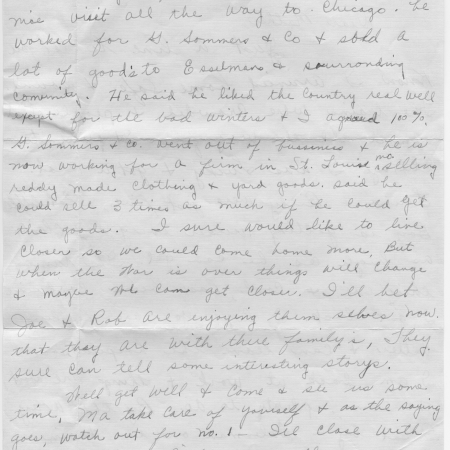 nice visit all the way to Chicago. he
worked for G. Sommers & Co & sold a
lot of goods to Esselmens & sourronding
comunity. He said he liked the Country real well
exept for the bad winters & I agreed 100%.
G. Sommers & co. went out of bussiness & he is
now working for a firm in St. Louise mo. selling
reddy made clothing & yard goods. said he
could sell 3 times as much if he could get
the goods. I sure would like to live
closer so we could come home more. But
when the War is over things will change
& maybe we can get closer. I'll bet
Joe & Rob are enjoying them selves now.
that they are with there family's, They
sure can tell some interesting storys.
Well get will & come & see us some
time, Ma take care of yourself & as the saying
goes, watch out for no. 1 - I'll close with